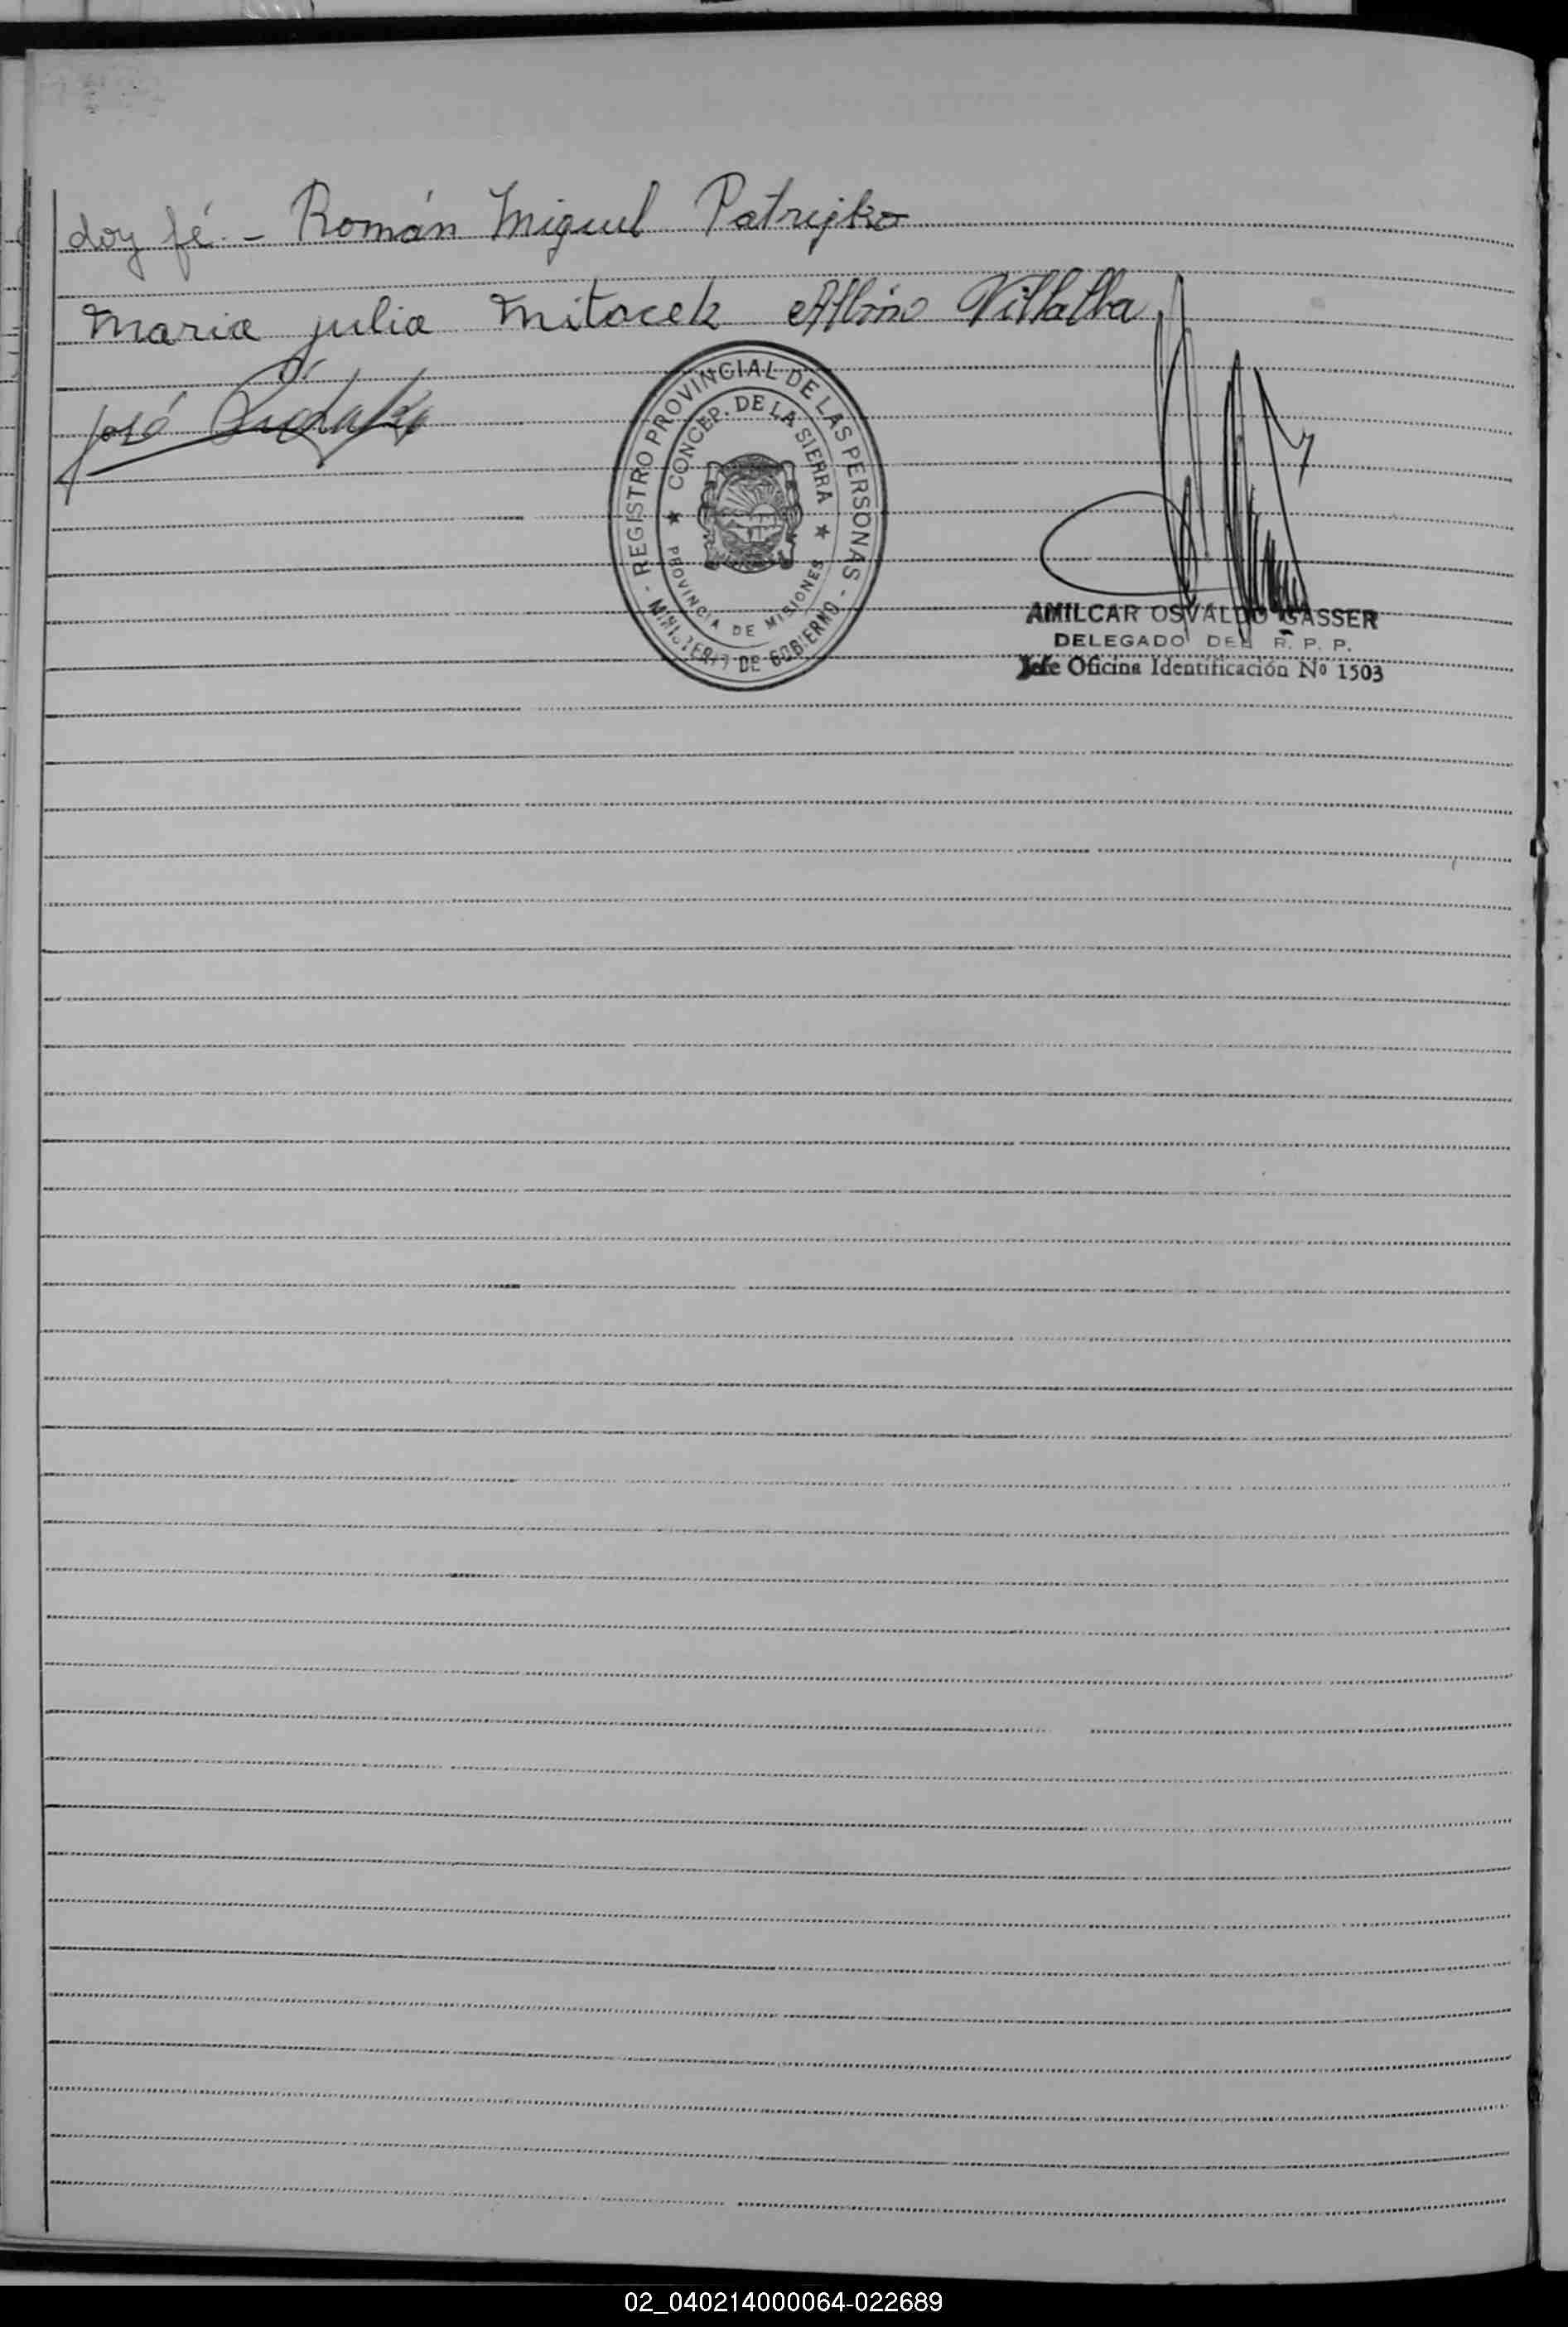 doy fé.- Román Miguel Patrejko
Maria julia Mitacek Albino Villalba
José
- REGISTRO PROVINCIAL DE LAS PERSONAS -
MINISTERIO DE GOBIERNO
★ CONCEP. DE LA SIERRA ★
PROVINCIA DE MISIONES
AMILCAR OSVALDO GASSER
DELEGADO DEL R. P. P.
Jefe Oficina Identificación Nº 1503
02_040214000064-022689